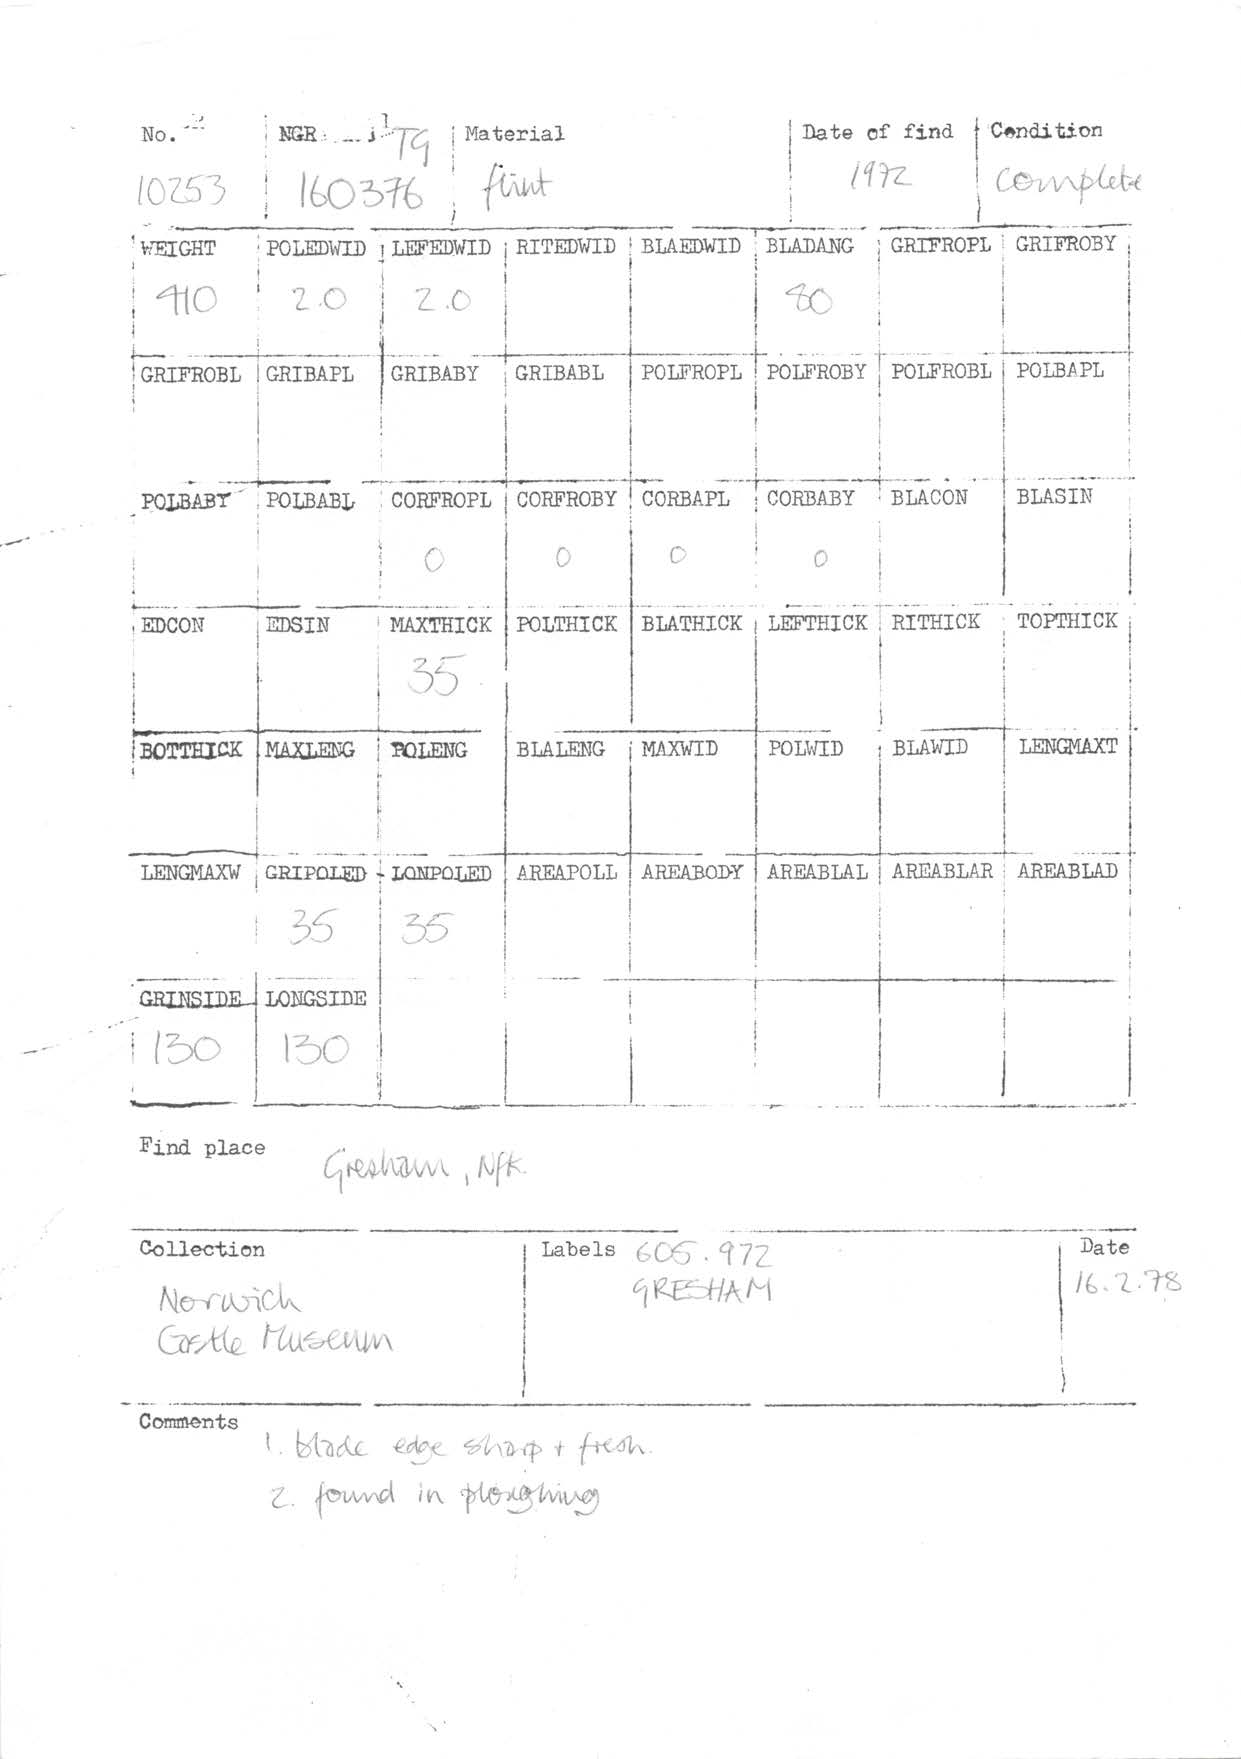 No. NGR TG Material Date of find Condition
10253 160376 flint 1972 complete
WEIGHT POLEDWID LEFEDWID RITEDWID BLAEDWID BLADANG GRIFROPL GRIFROBY
410 2.0 2.0 80
GRIFROBL GRIBAPL GRIBABY GRIBABL POLFROPL POLFROBY POLFROBL POLBAPL
POLBABY POLBABL CORFROPL CORFROBY CORBAPL CORBABY BLACON BLASIN
0 0 0 0
EDCON EDSIN MAXTHICK POLTHICK BLATHICK LEFTHICK RITHICK TOPTHICK
35
BOTTHICK MAXLENG POLENG BLALENG MAXWID POLWID BLAWID LENGMAXT
LENGMAXW GRIPOLED LONPOLED AREAPOLL AREABODY AREABLAL AREABLAR AREABLAD
35 35
GRINSIDE LONGSIDE
130 130
Find place Gresham, Nfk.
Collection Labels 605.972 Date
GRESHAM 16.2.78
Norwich
Castle Museum
Comments
1. blade edge sharp + fresh.
2. found in ploughing